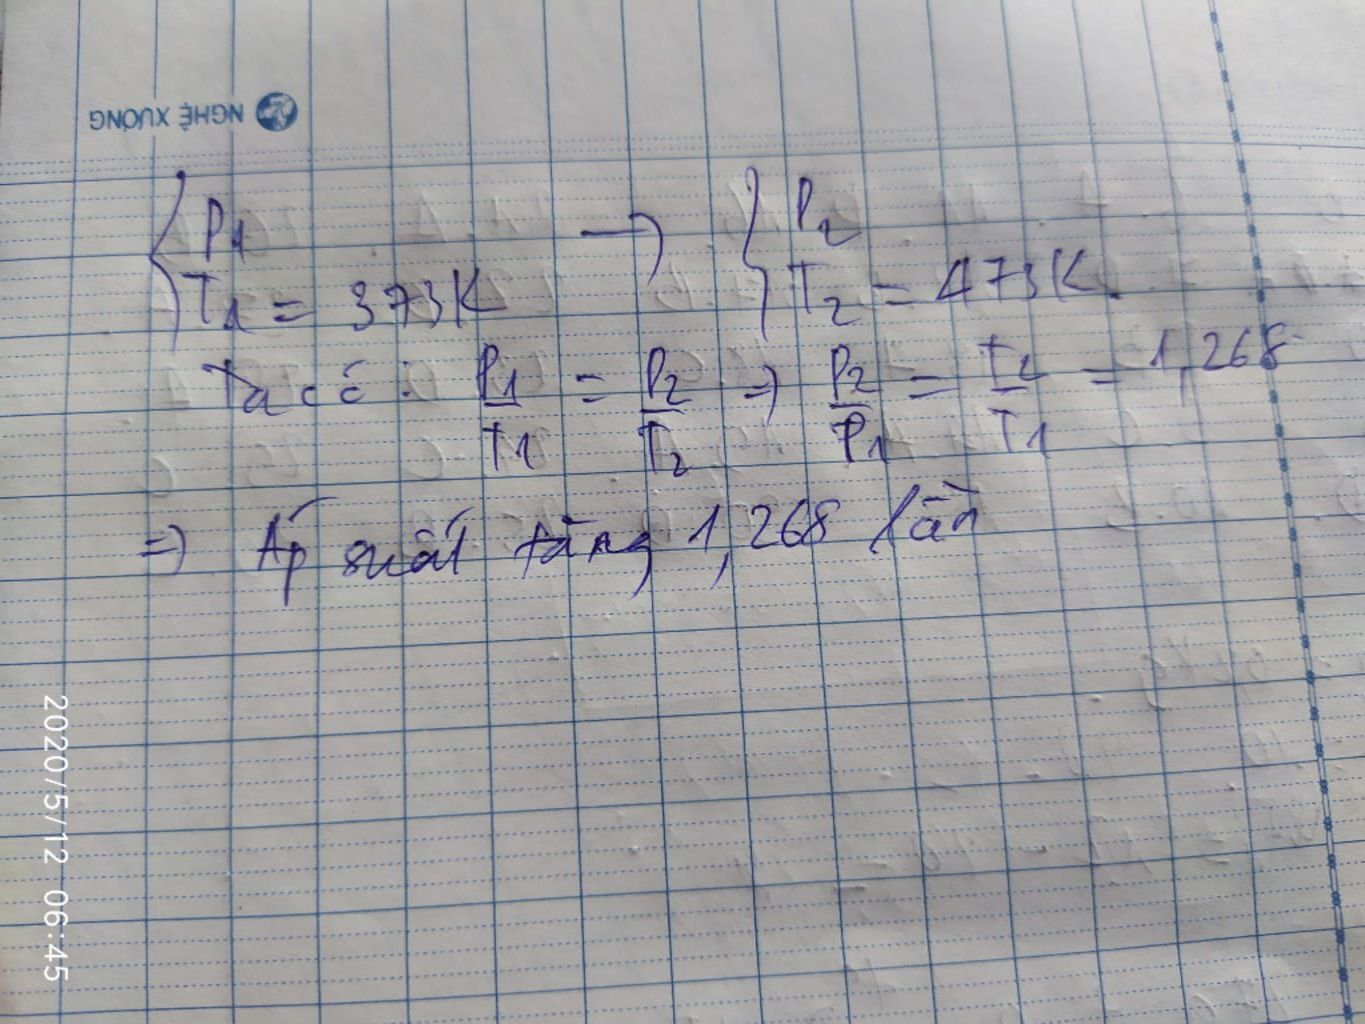 NGHỆ XƯƠNG
{ P1 → { P2
T1 = 373K T2 = 473K
Ta có : P1/T1 = P2/T2 => P2/P1 = T2/T1 = 1,268
=> Áp suất tăng 1,268 lần
2020/5/12 06:45